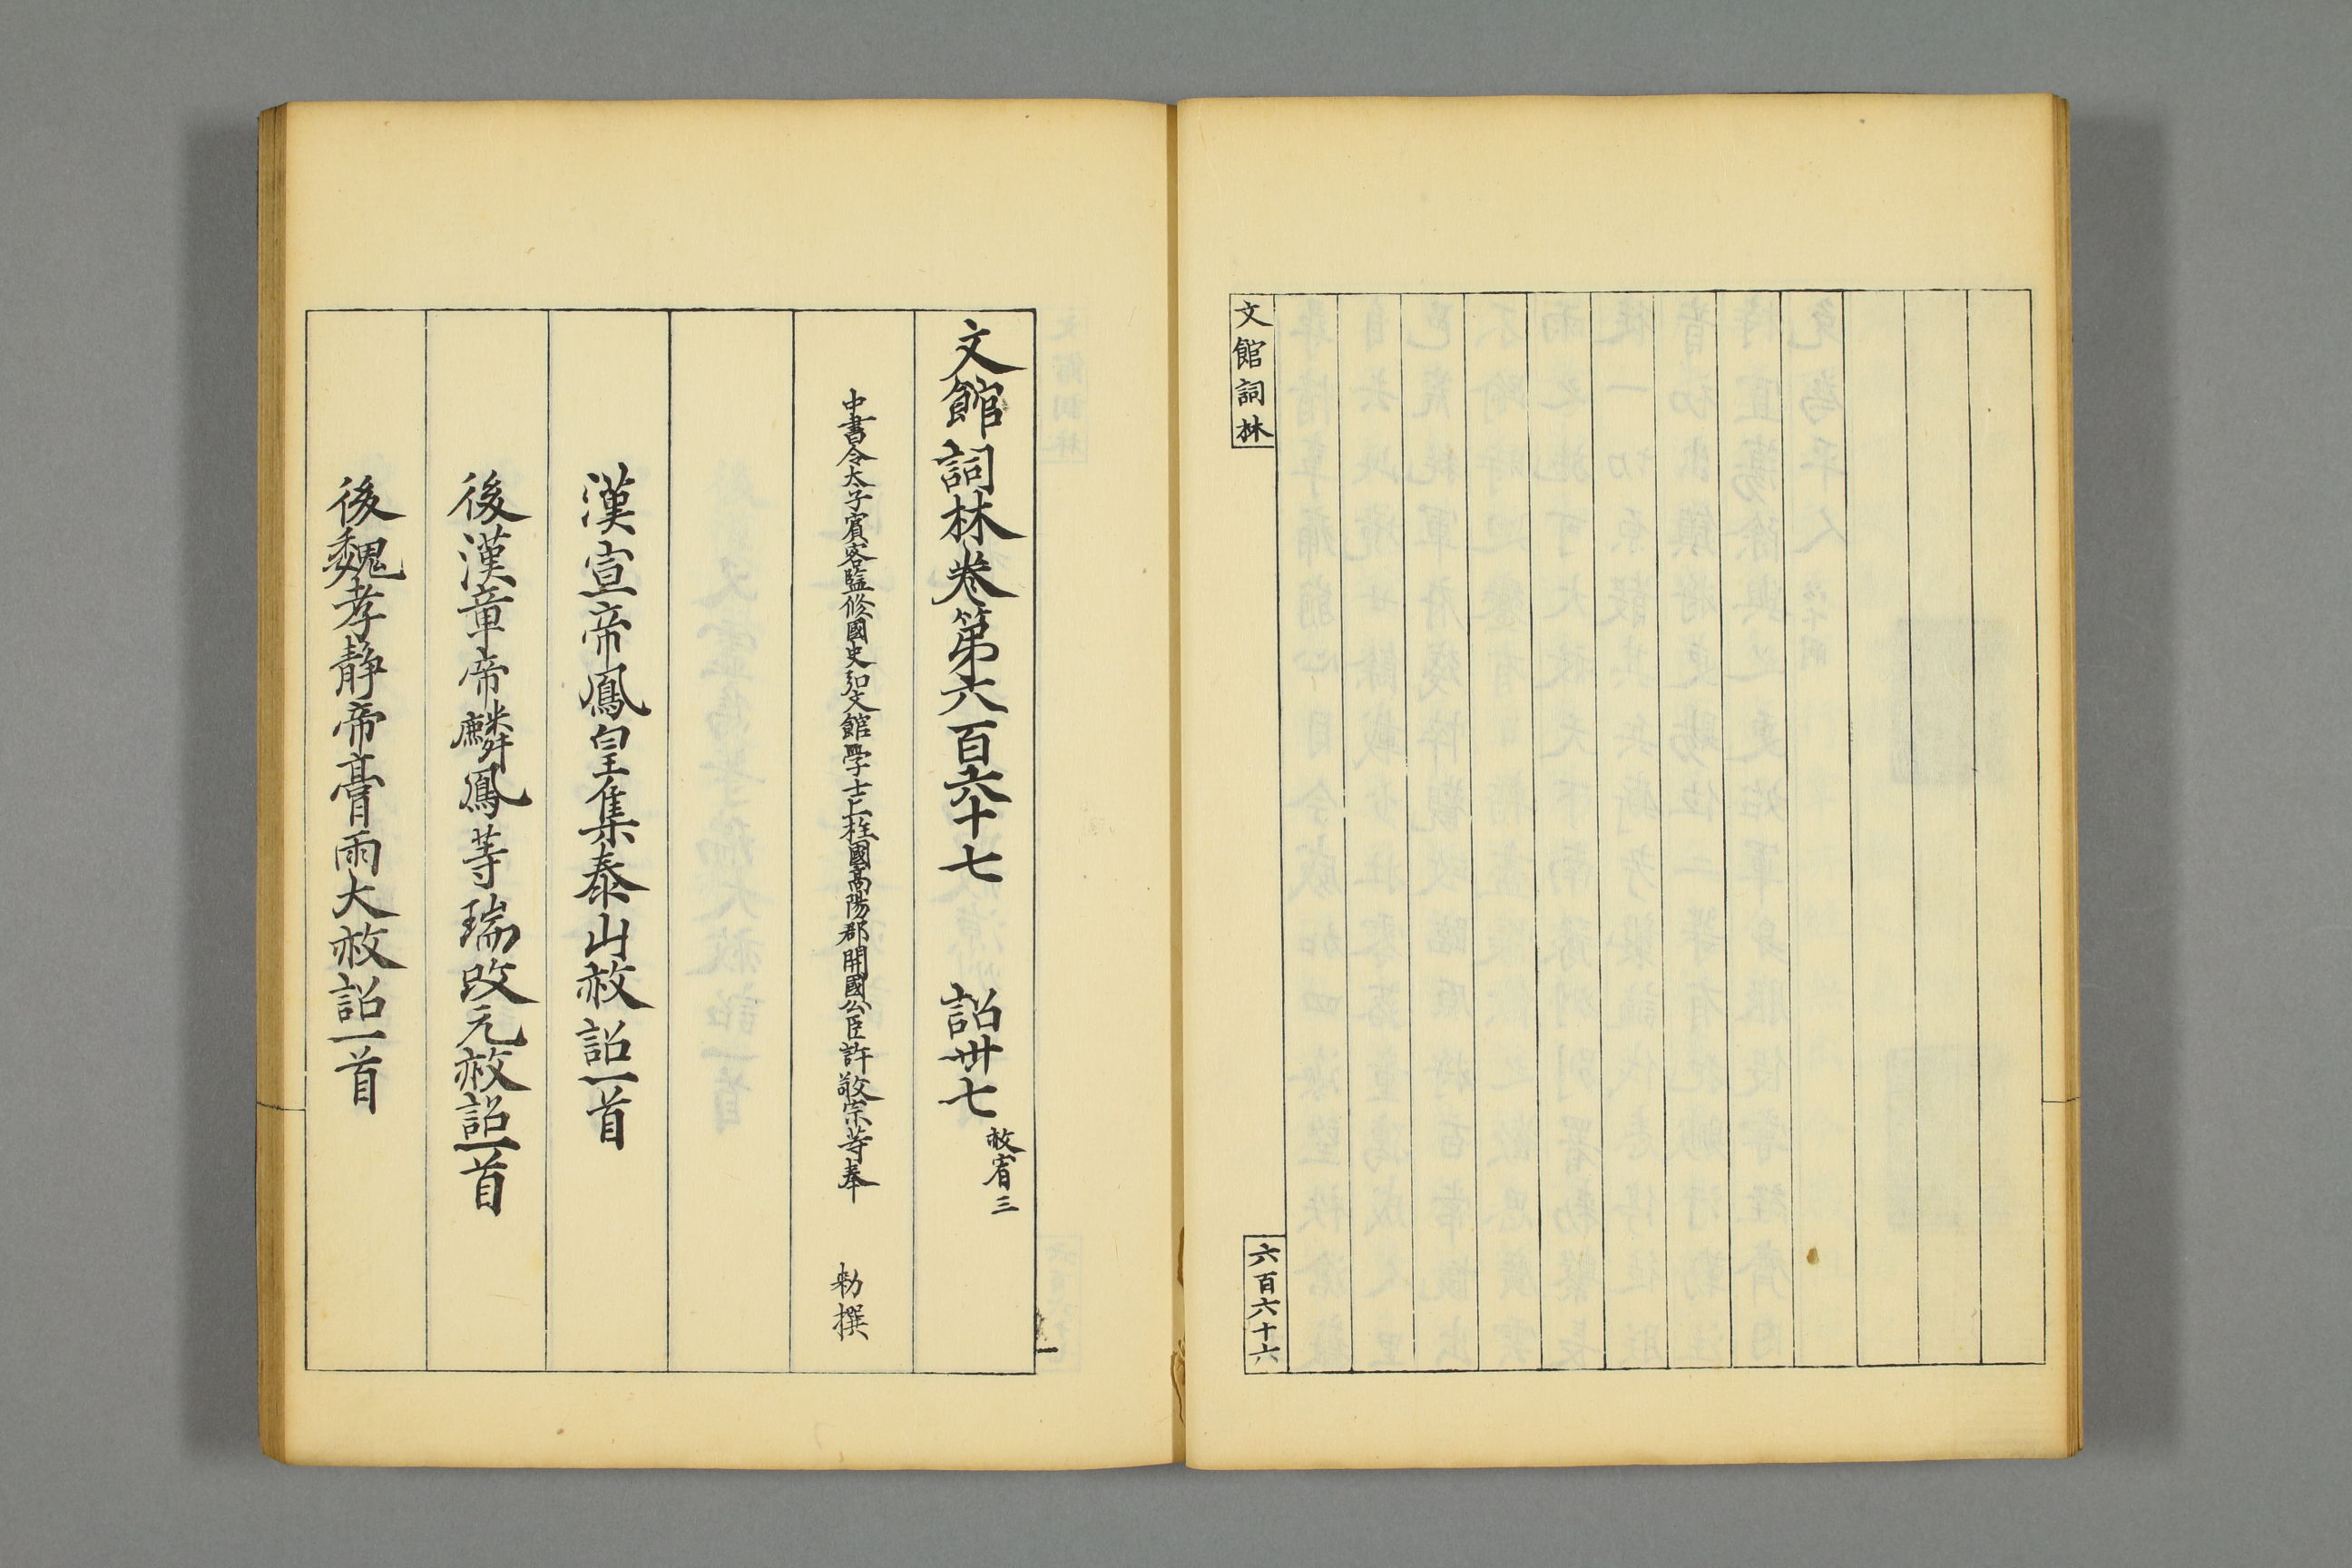 文館詞林
六百六十六
文館詞林卷第六百六十七 詔卅七 赦宥三
中書令太子賓客監修國史弘文館學士上柱國高陽郡開國公臣許敬宗等奉 勑撰
漢宣帝鳳皇集泰山赦詔一首
後漢章帝麟鳳等瑞改元赦詔一首
後魏孝静帝膏雨大赦詔一首